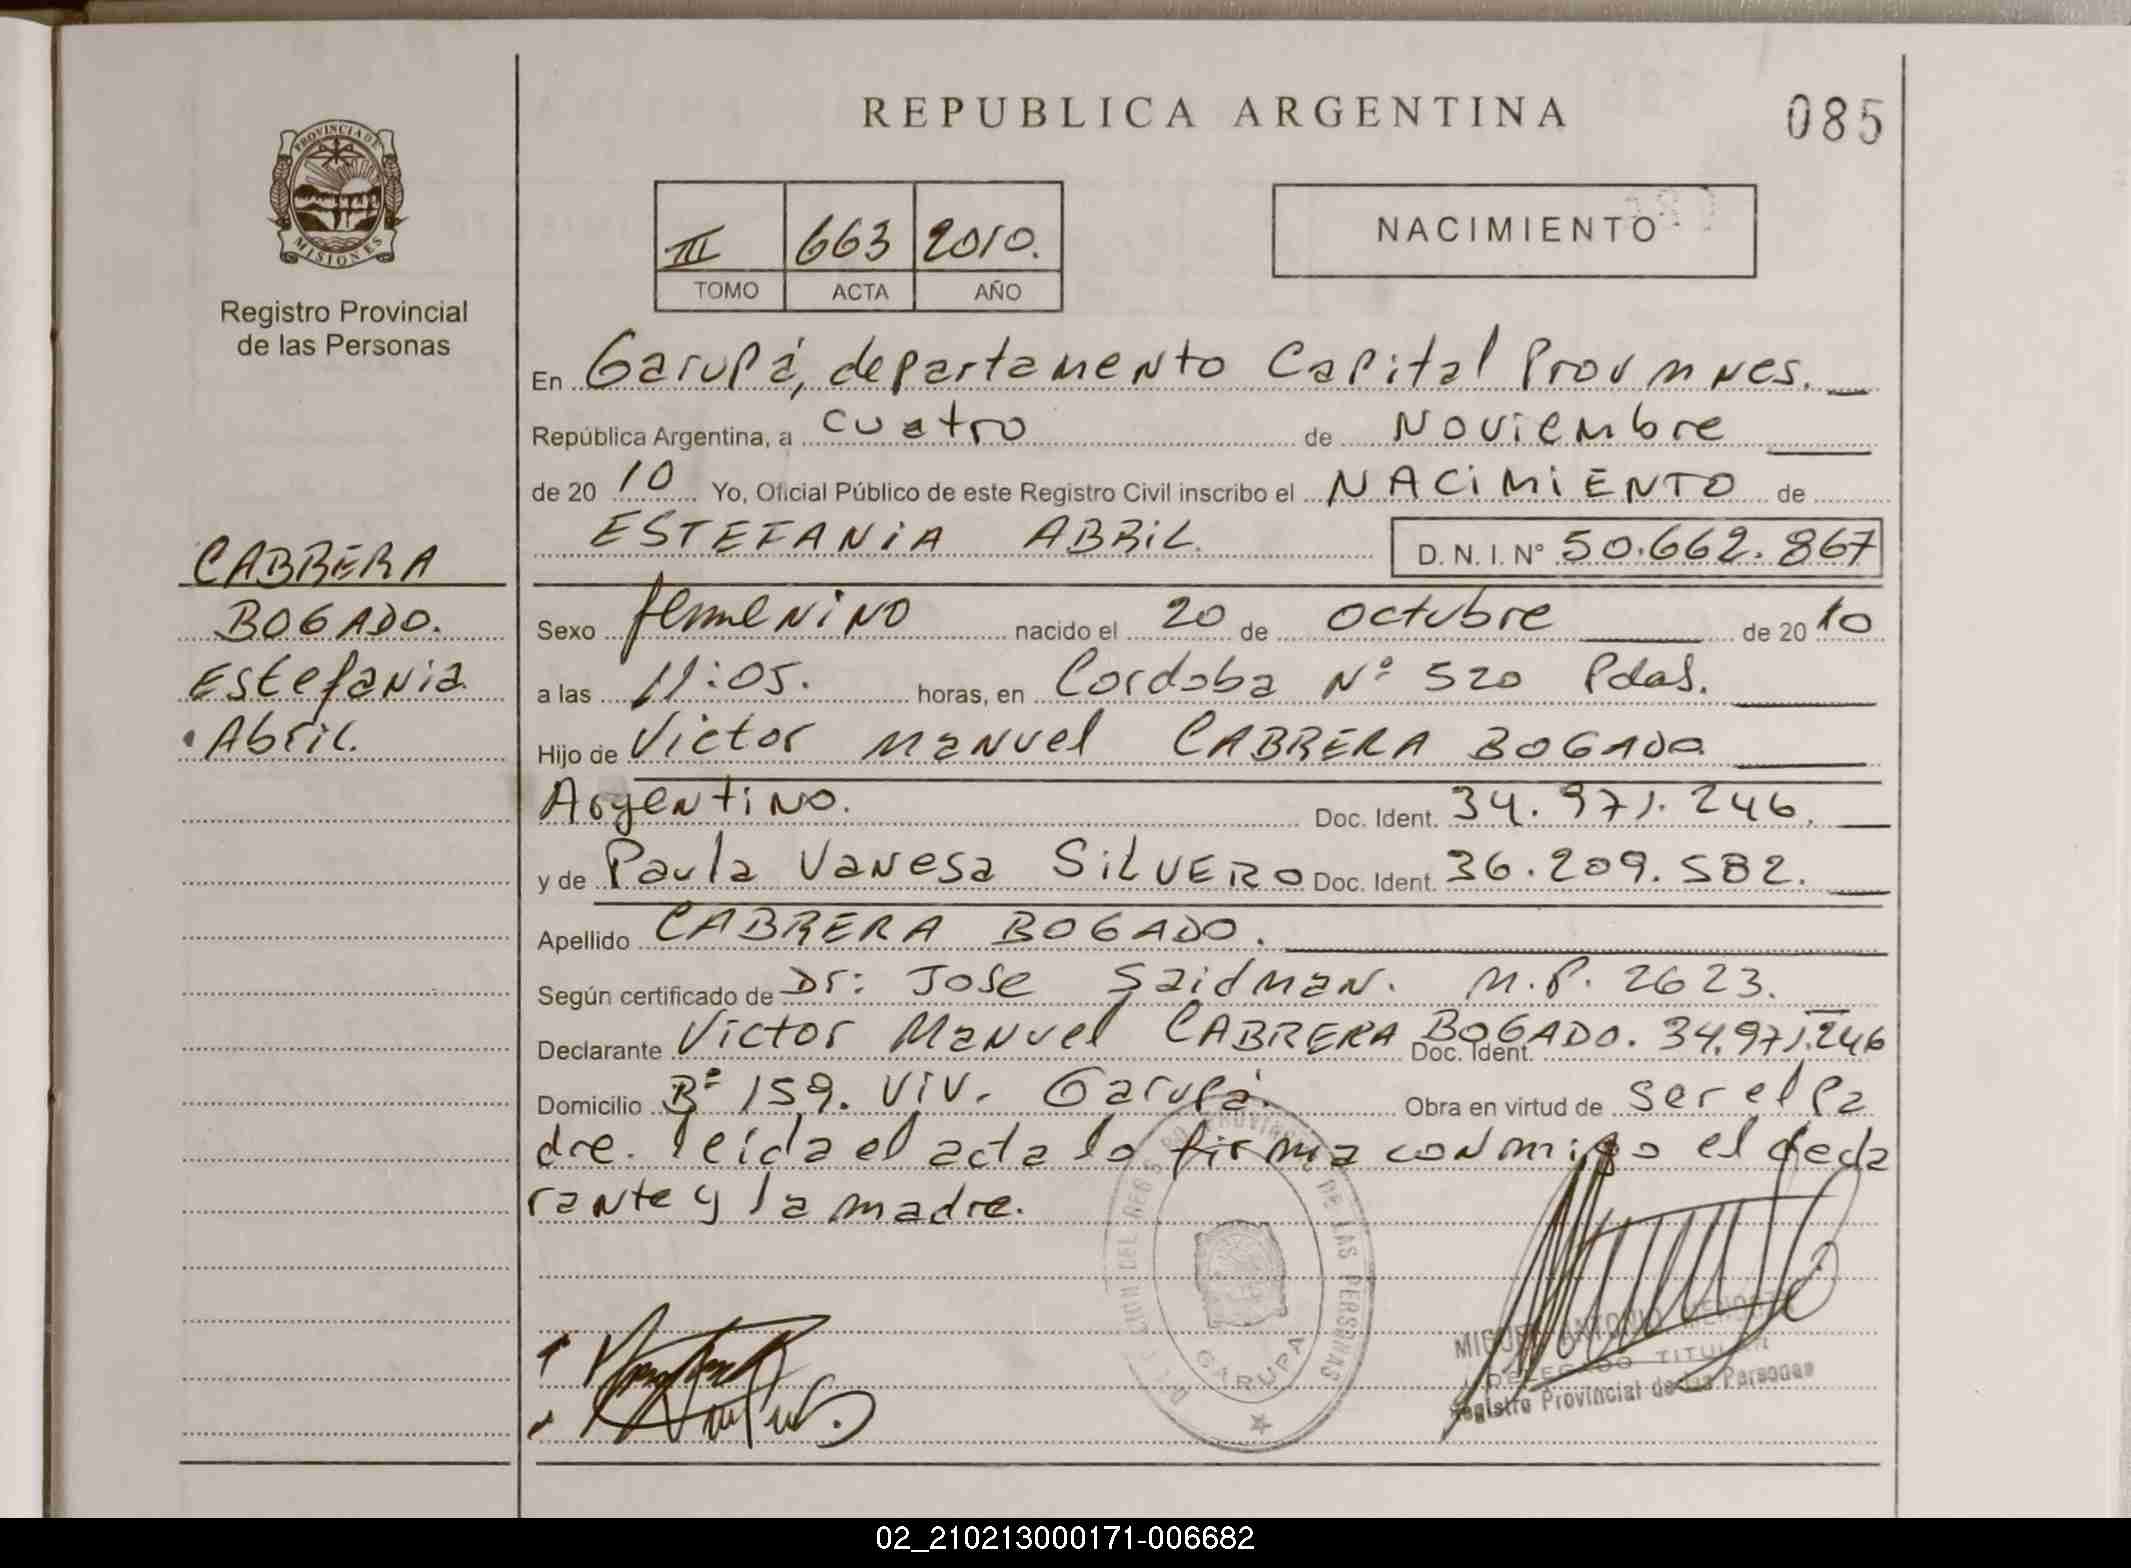 REPUBLICA ARGENTINA
085
PROVINCIA DE
MISIONES
Registro Provincial
de las Personas
III 663 2010.
TOMO ACTA AÑO
NACIMIENTO
En Garupá, departamento Capital Prov Mnes.
República Argentina, a cuatro de Noviembre
de 20 10 Yo, Oficial Público de este Registro Civil inscribo el NACIMIENTO de
ESTEFANIA ABRIL D. N. I. N° 50.662.867
CABRERA
BOGADO.
Estefania
Abril.
Sexo femenino nacido el 20 de octubre de 20 10
a las 11:05. horas, en Cordoba N° 520 Pdas.
Hijo de Victor Manuel CABRERA BOGADO
Argentino. Doc. Ident. 34.971.246.
y de Paula Vanesa SILVERO Doc. Ident. 36.209.582.
Apellido CABRERA BOGADO.
Según certificado de Dr: Jose Saidman. M.P. 2623.
Declarante Victor Manuel CABRERA BOGADO. Doc. Ident. 34.971.246
Domicilio B° 159. Viv. Garupá. Obra en virtud de ser el pa
dre. leida el acta la firma conmigo el decla
rante y la madre.
PROVINCIAL DE LAS PERSONAS
GARUPA
MIGUEL ANTONIO
DELEGADO TITULAR
Registro Provincial de las Personas
02_210213000171-006682